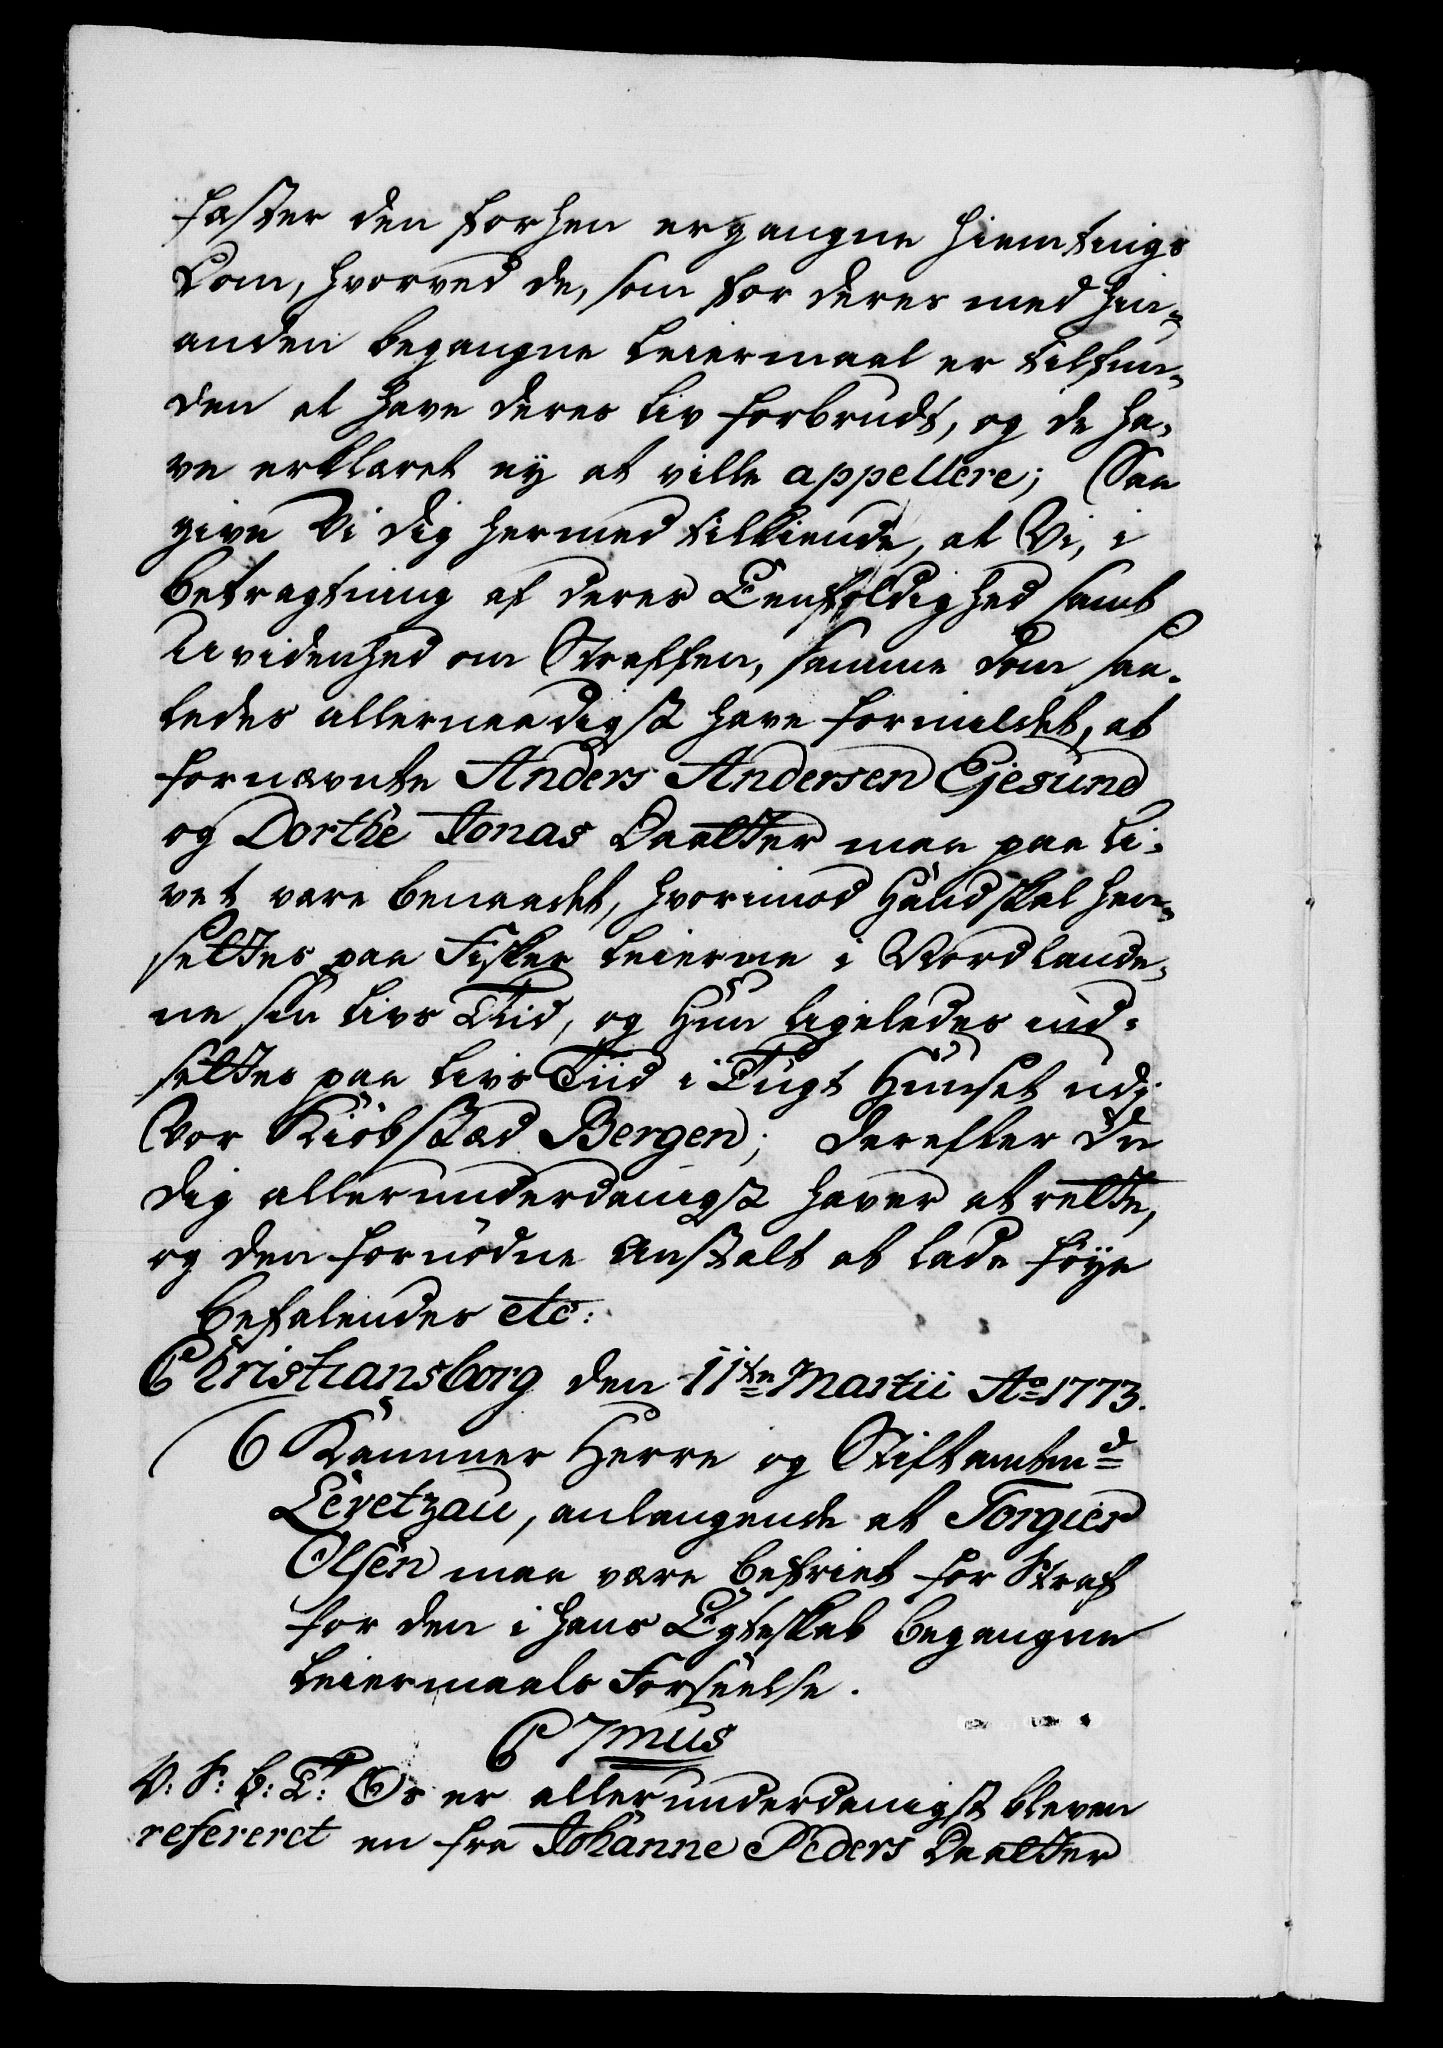 fæster den forhen ergangne Hiemtings
Dom, hvorved de, som for deres med hin-
anden begangne Leiermaal er tilfun-
den at have deres Liv forbrudt, og de ha-
ve erklæret ey at ville appellere; Saa
give Vi dig hermed tilkiende, at Vi, i
betragtning af deres Eenfoldighed samt
Uvidenhed om Straffen, samme Dom saa-
ledes allernaadigst have formildet, at
fornævnte Anders Andersen Ejesund
og Dorthe Jonas Daatter maa paa Li-
vet være benaadet, hvorimod Hand skal hen-
settes paa Fisker Leierne i Nordlande-
ne sin Livs Tiid, og Hun ligeledes ind-
settes paa Livs Tiid i Tugt Huuset udi
Vor Kiöbstæd Bergen; derefter du
dig allerunderdanigst haver at rette,
og den fornödne Anstalt at lade föye
Befalendes etc:
Christiansborg den 11te Martii Ao 1773.
C Kammer Herre og Stiftamtmd
Levetzau, anlangende at Torgier
Olsen maa være befriet for Straf
for den i hans Egteskab begangne
Leiermaals Forseelse.
C 7mus
V: S: G: T: Os er allerunderdanigst bleven
refereret en fra Johanne Peders Daatter